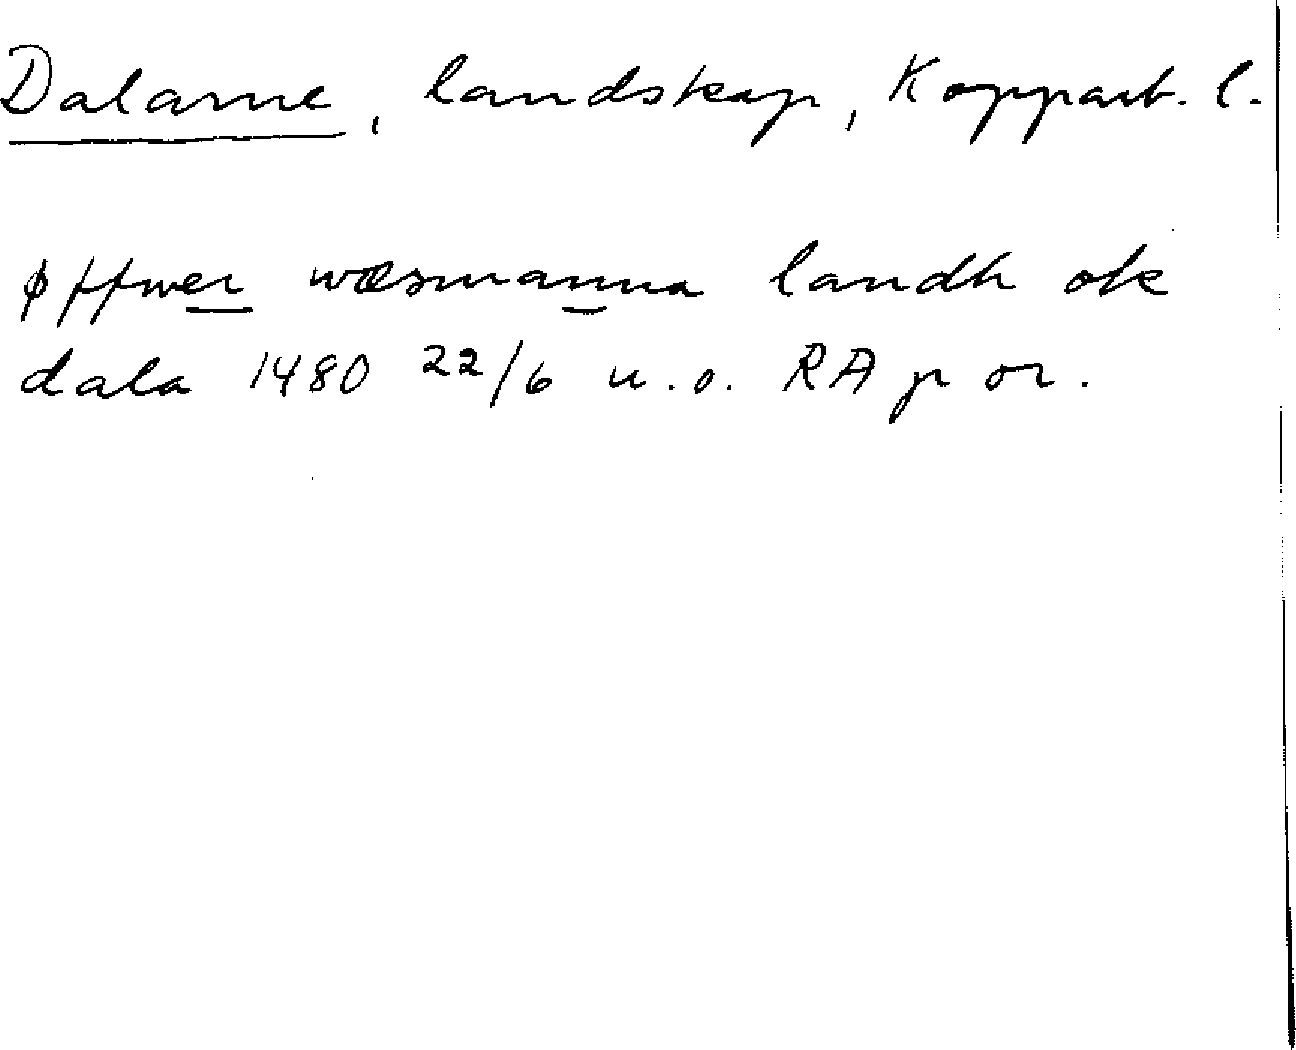 Dalarne, landskap, Kopparb. l.
øffwer wæsmanna landh ok
dala 1480 22/6 u.o. RA p or.